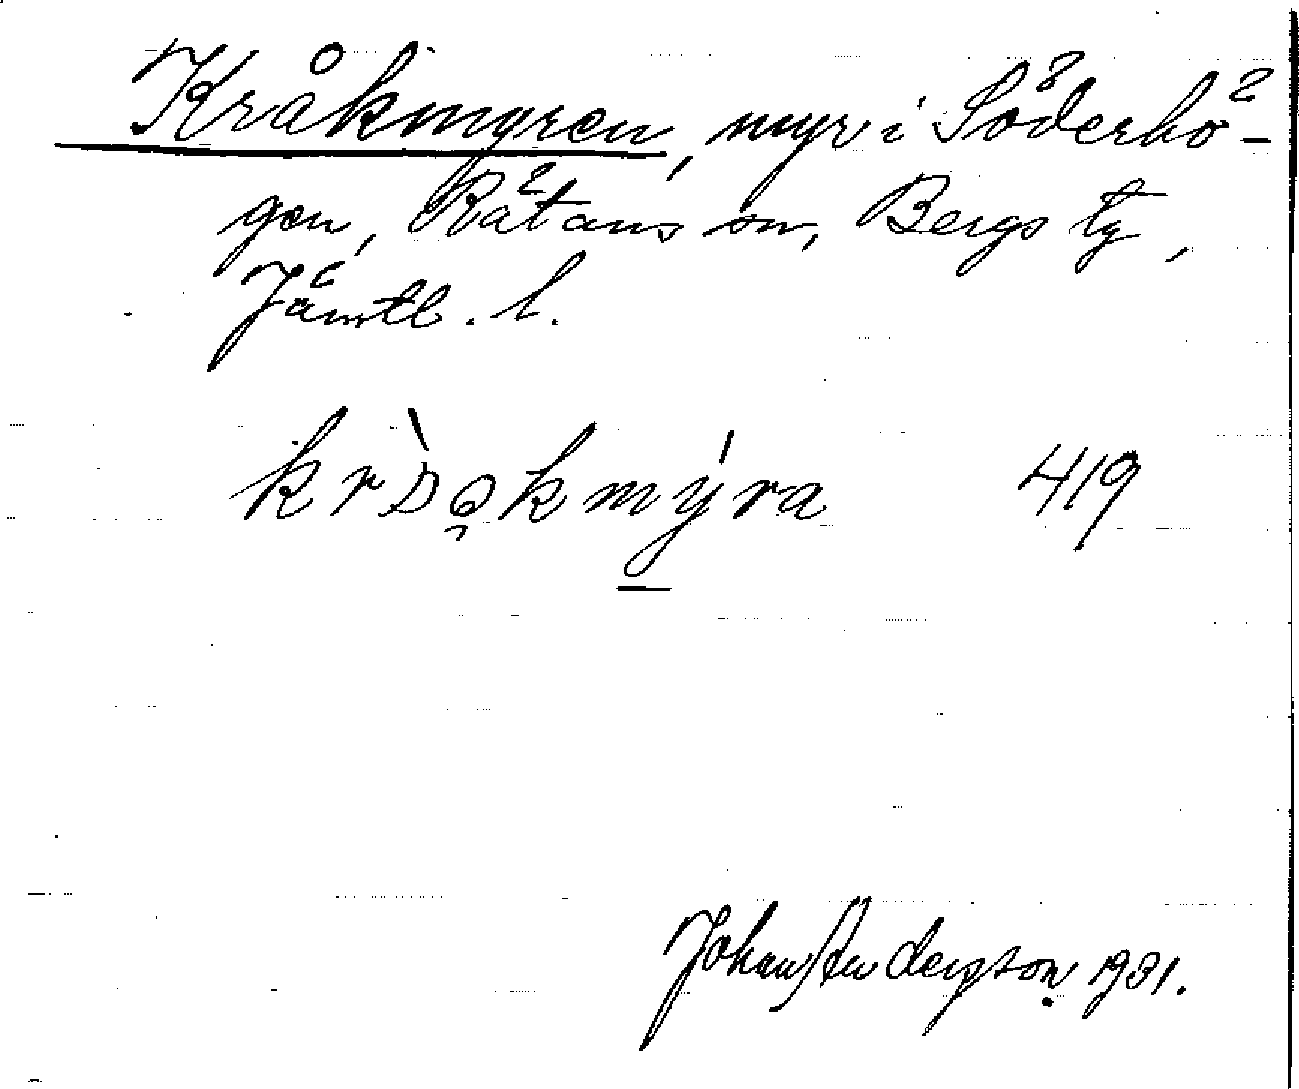 Kråkmyren, myr i Söderhö-
gen, Rätans sn, Bergs tg,
Jämtl. l.
419
Johan Anderson 1931.